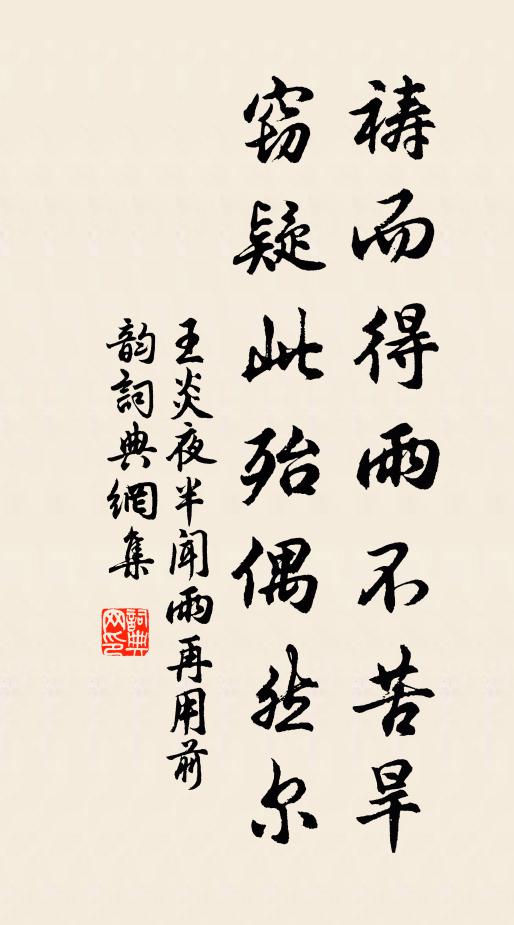 禱而得雨不苦旱
竊疑此殆偶然尔
王炎夜半聞雨再用前
韵詞典網集
詞典
网印